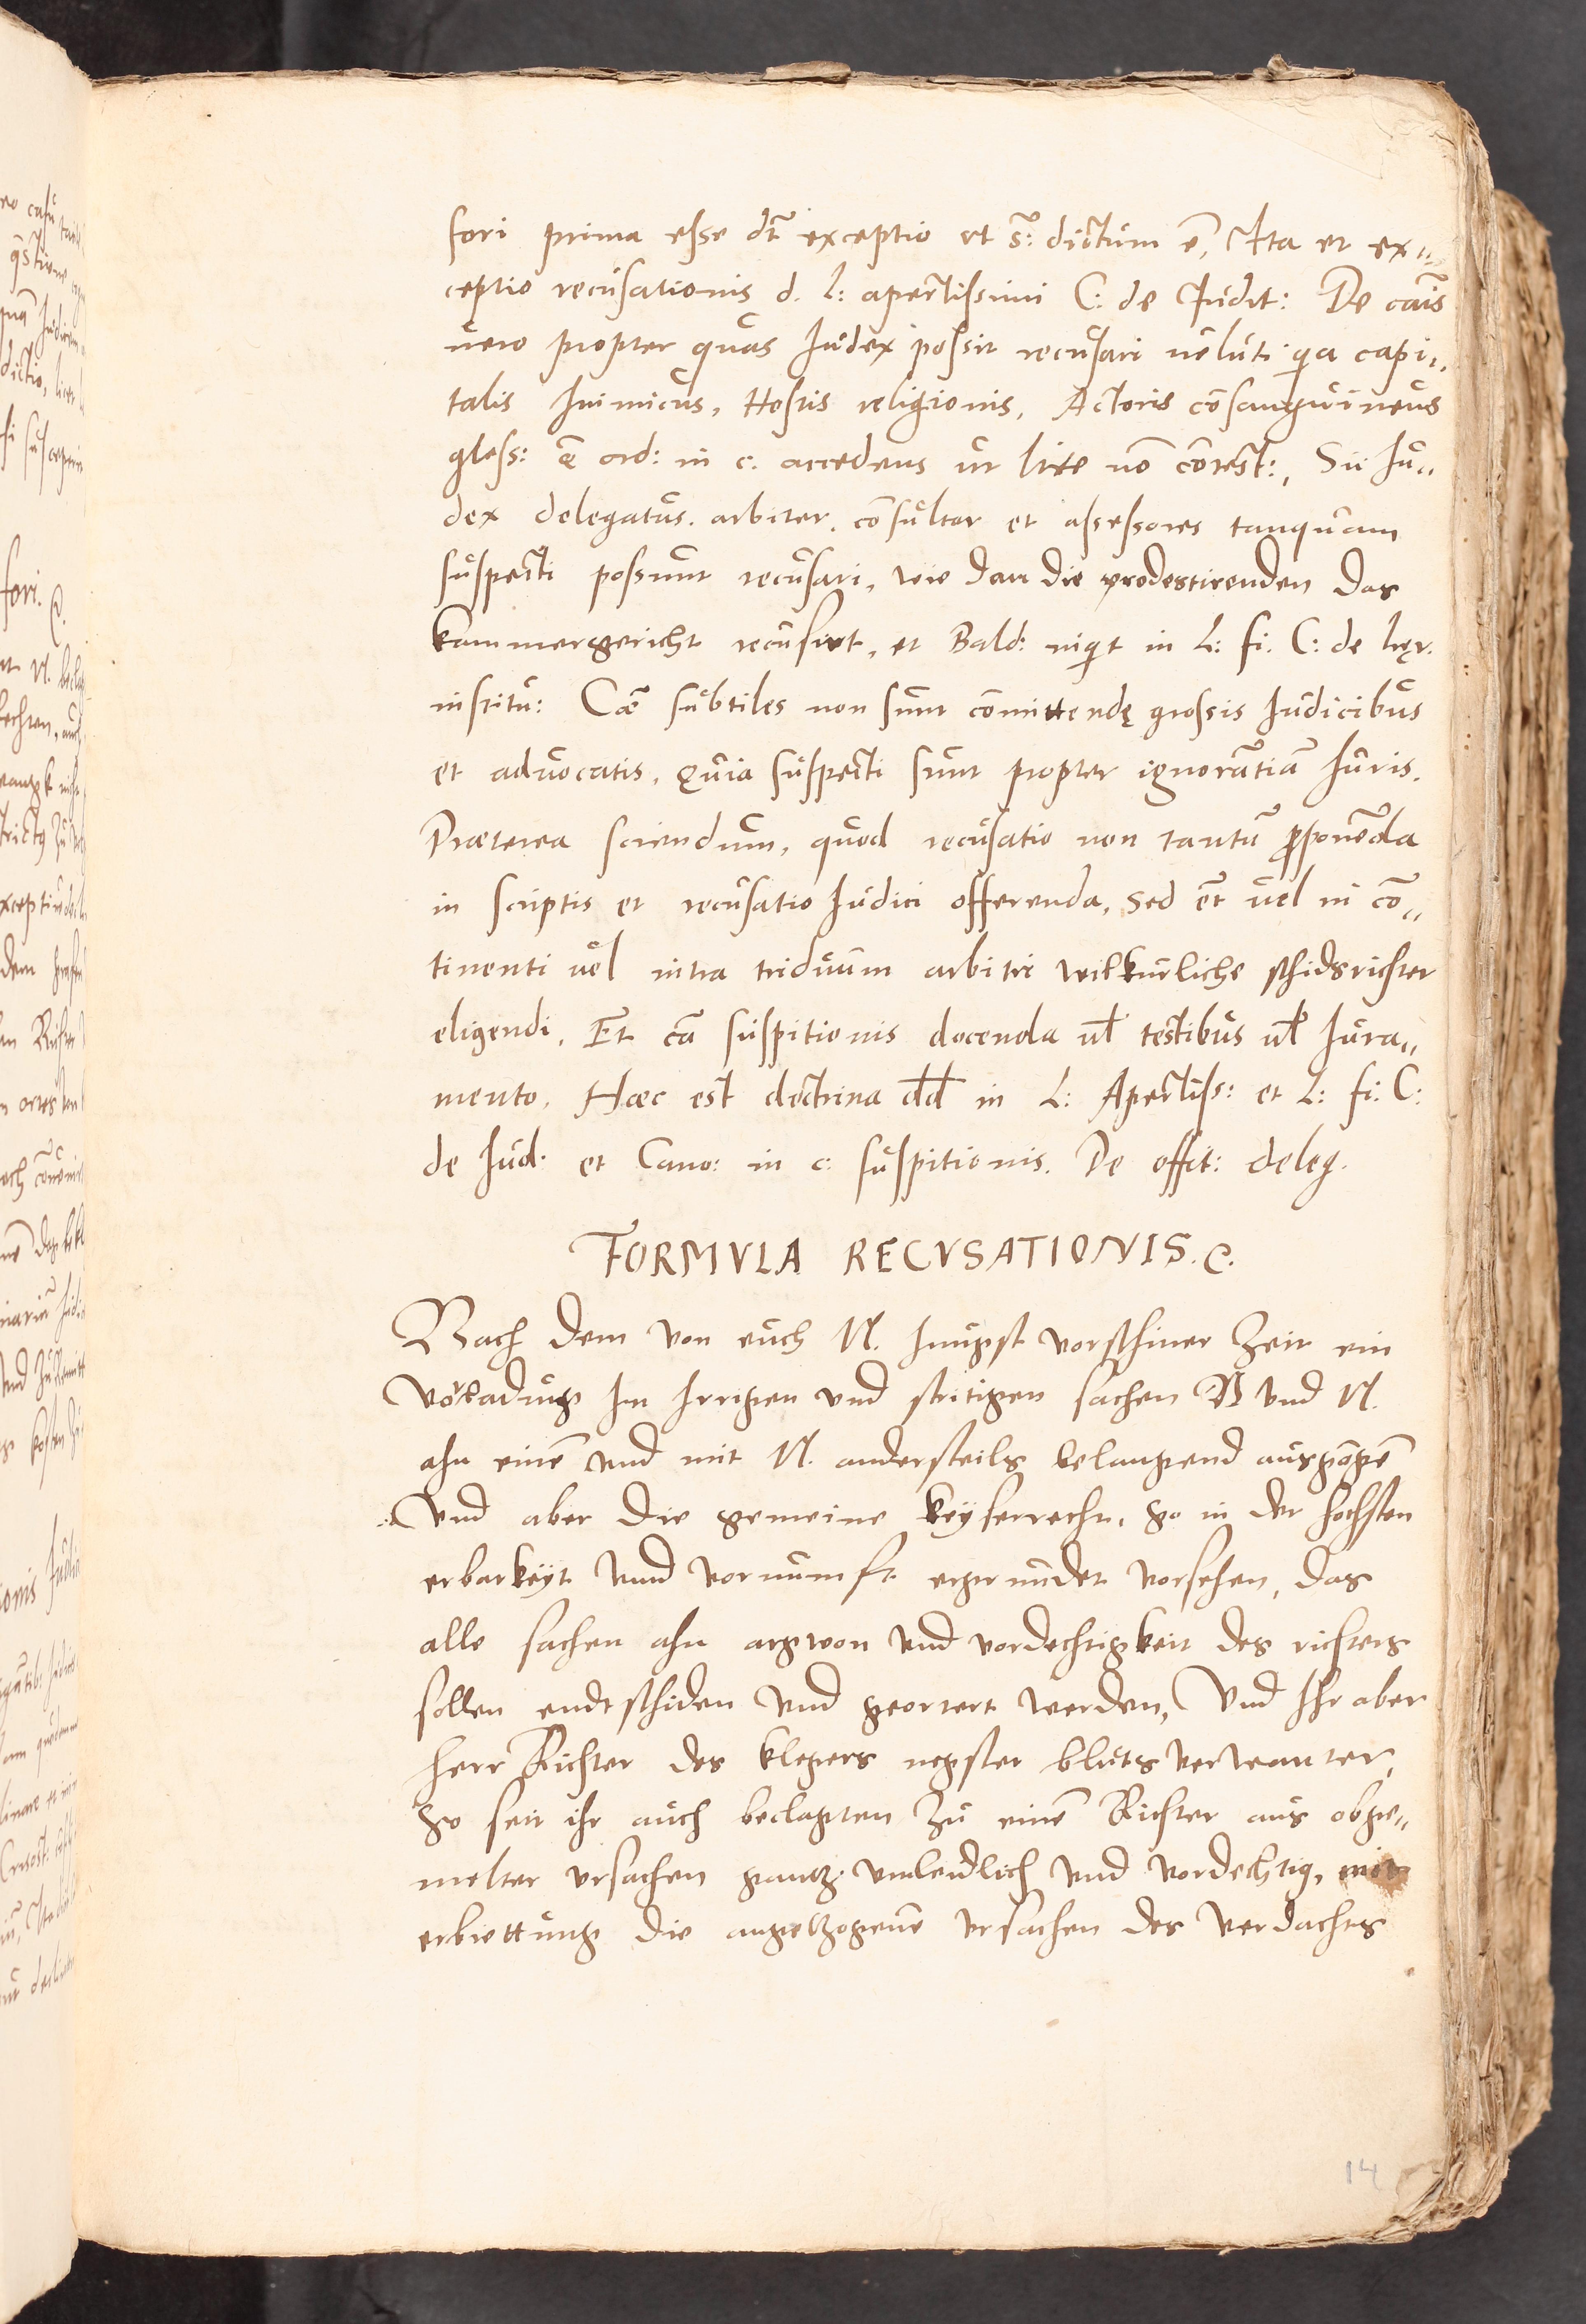 fori prima esse dr̃ exceptio vt s̃: dictum ẽ, Ita et ex„
ceptio recusationis d. l: apertissimi C: de Iudit: De cãis
uero propter quas Iudex possit recusari ueluti q̃a capi„
talis Inimicus, Hostis religionis, Actoris cõsanguineus
gloss: ord: in c. accedens ut lite nõ cõtest:, Sii Iu„
dex delegatus. arbiter. cõsultor et assessores tanquam
suspecti possunt recusari, wie dan die prodestirenden das
kammergericht recusirt, et Bald: inq̃t in L: fi. C: de hęr.
institu: Cæ̃ subtiles non sunt cõmittendę grossis Iudicibus
et aduocatis, Quia suspecti sunt propter ignorãtiã Iuris.
Praeterea sciendum, quod recusatio non tantũ ꝓponẽda
in scriptis et recusatio Iudici offerenda, sed et̃ uel in cõ„
tinenti uel intra triduum arbitri wilkurliche schidsrichter
eligendi, Et cã suspitionis docenda ul̃ testibus ul̃ Iura„
mento. Haec est doctrina dd in L: Apertiss: et L: fi: C:
de Iud: et Cano: in c: suspitionis. De offit: deleg.
FORMVLA RECVSATIONIS. C.
Nach dem von euch N. Iungst vorschiner Zeit ein
vorladung Im Irrigen vnd stritigen sachen N vnd N.
ahn einẽ vnd mit N. andersteils belangend ausgãgẽ
Vnd aber die gemeine keyserrecht, so in der hochsten
erbarkeyt vnnd vornumft ergrundet vorsehen, das
alle sachen ahn argwon vnd vordechtigkeit des richters
sollen endtschiden vnd geortert werden, Vnd Ihr aber
herr Richter des klegers negster bluts verwanter,
So seit ihr auch beclagten zu einẽ Richter aus obge„
melter vrsachen gantz vnleidlich vnd vordechtig, mit
erbiettung die angetzogene vrsachen des verdachts
14